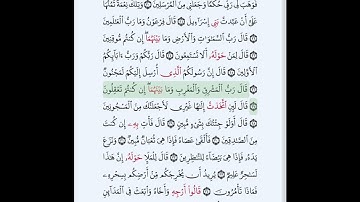 فَوَهَبَ لِى رَبِّى حُكْمًا وَجَعَلَنِى مِنَ ٱلْمُرْسَلِينَ ۝ وَتِلْكَ نِعْمَةٌ تَمُنُّهَا
عَلَىَّ أَنْ عَبَّدتَّ بَنِىٓ إِسْرَٰٓءِيلَ ۝ قَالَ فِرْعَوْنُ وَمَا رَبُّ ٱلْعَٰلَمِينَ
۝ قَالَ رَبُّ ٱلسَّمَٰوَٰتِ وَٱلْأَرْضِ وَمَا بَيْنَهُمَآ إِن كُنتُم مُّوقِنِينَ
۝ قَالَ لِمَنْ حَوْلَهُۥٓ أَلَا تَسْتَمِعُونَ ۝ قَالَ رَبُّكُمْ وَرَبُّ ءَابَآئِكُمُ
ٱلْأَوَّلِينَ ۝ قَالَ إِنَّ رَسُولَكُمُ ٱلَّذِىٓ أُرْسِلَ إِلَيْكُمْ لَمَجْنُونٌ
۝ قَالَ رَبُّ ٱلْمَشْرِقِ وَٱلْمَغْرِبِ وَمَا بَيْنَهُمَآ إِن كُنتُمْ تَعْقِلُونَ
۝ قَالَ لَئِنِ ٱتَّخَذْتَ إِلَٰهًا غَيْرِى لَأَجْعَلَنَّكَ مِنَ ٱلْمَسْجُونِينَ
۝ قَالَ أَوَلَوْ جِئْتُكَ بِشَىْءٍ مُّبِينٍ ۝ قَالَ فَأْتِ بِهِۦٓ إِن كُنتَ
مِنَ ٱلصَّٰدِقِينَ ۝ فَأَلْقَىٰ عَصَاهُ فَإِذَا هِىَ ثُعْبَانٌ مُّبِينٌ ۝ وَنَزَعَ
يَدَهُۥ فَإِذَا هِىَ بَيْضَآءُ لِلنَّٰظِرِينَ ۝ قَالَ لِلْمَلَإِ حَوْلَهُۥٓ إِنَّ هَٰذَا
لَسَٰحِرٌ عَلِيمٌ ۝ يُرِيدُ أَن يُخْرِجَكُم مِّنْ أَرْضِكُم بِسِحْرِهِۦ
فَمَاذَا تَأْمُرُونَ ۝ قَالُوٓا۟ أَرْجِهْ وَأَخَاهُ وَٱبْعَثْ فِى ٱلْمَدَآئِنِ